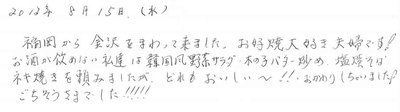 2012年 8月15日.(水)
福岡から金沢をまわって来ました。お好焼大好き夫婦です!
お酒が飲めない私達は韓国風野菜サラダ・木の子バター炒め、塩焼そば
ネギ焼きを頼みましたが、どれもおいしい〜!!おかわりしちゃいました!
ごちそうさまでした!!!!!